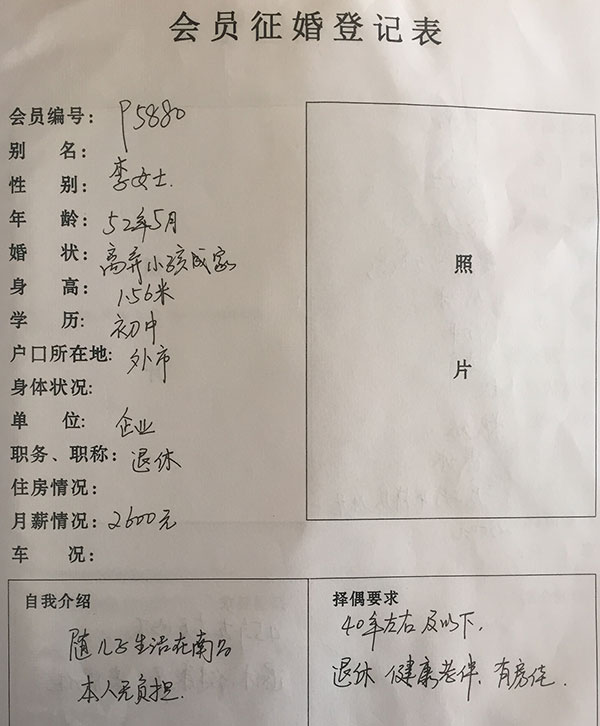 会员征婚登记表
会员编号：P5880
别 名：
性 别：李女士.
年 龄：52年5月
婚 状：离异小孩成家
身 高：1.56米
学 历：初中
户口所在地：外市
身体状况：
单 位：企业
职务、职称：退休
住房情况：
月薪情况：2600元
车 况：
照
片
自我介绍
随儿子生活在南昌
本人无负担.
择偶要求
40年左右及以下，
退休、健康老伴、有房住.